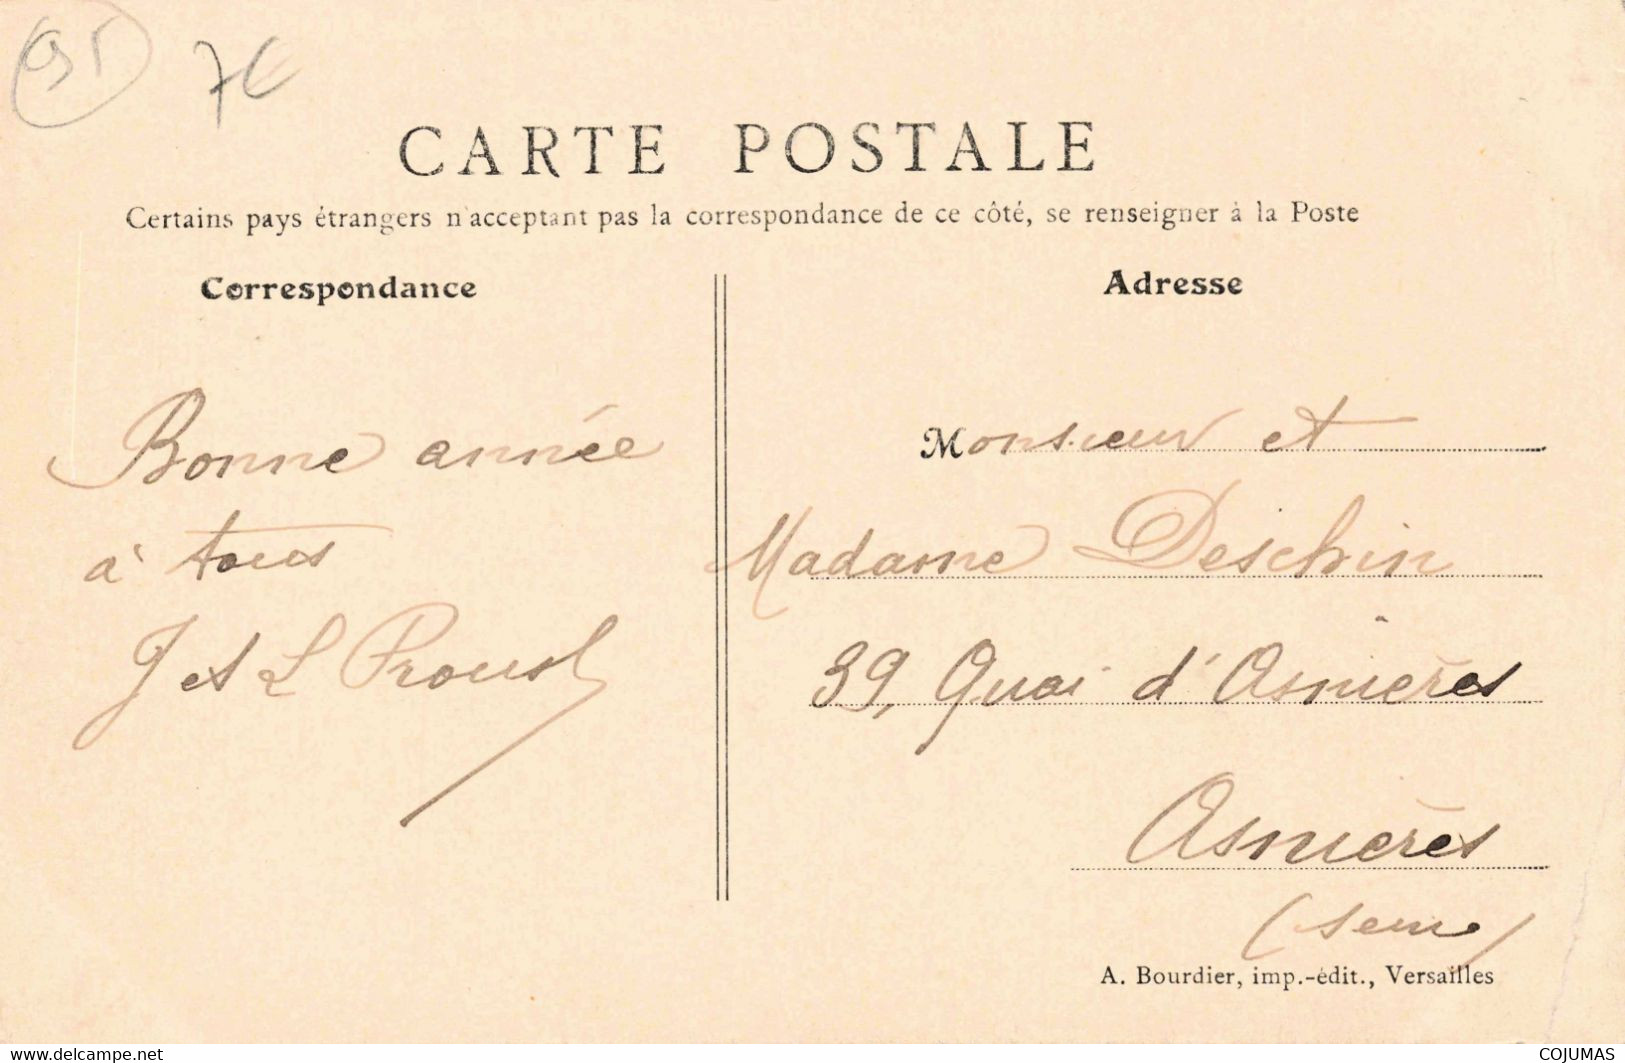 95 7€
CARTE POSTALE
Certains pays étrangers n'acceptant pas la correspondance de ce côté, se renseigner à la Poste
Correspondance
Bonne année
à tous
J et L Proust
Adresse
Monsieur et
Madame Deschin
39, Quai d'Asnières
Asnières
(Seine)
A. Bourdier, imp.-édit., Versailles
www.delcampe.net
COJUMAS